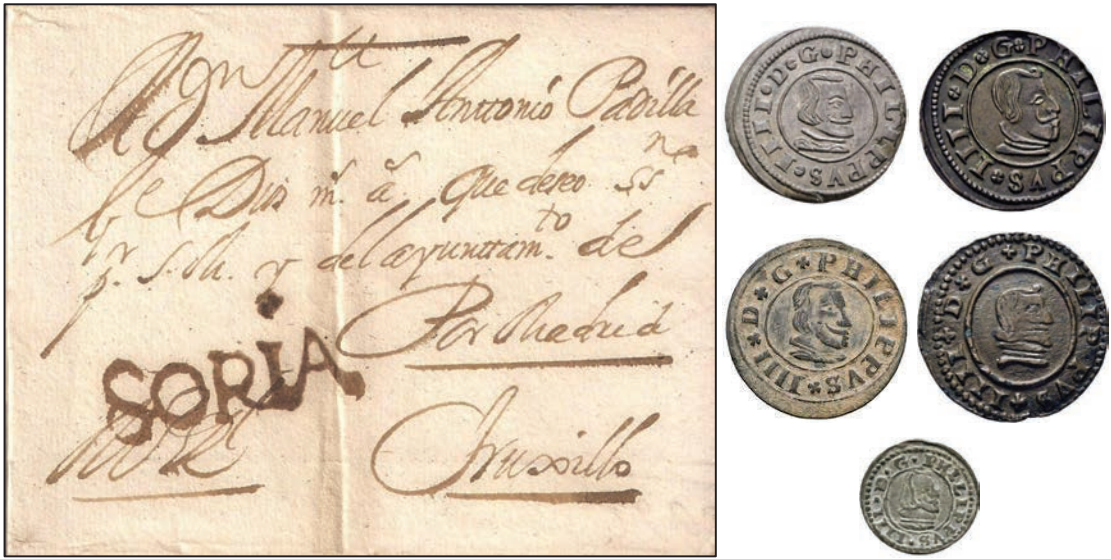 A Dn Manuel Anttonio Padilla
Dios ms. as. que deseo
p. S.M. y del ayunttamto. de
Por Madrid
SORIA
Truxillo
PHILIPPVS IIII D G
PHILIPPVS IIII D G
PHILIPPVS IIII D G
PHILIPPVS IIII D G
PHILIPPVS IIII D G